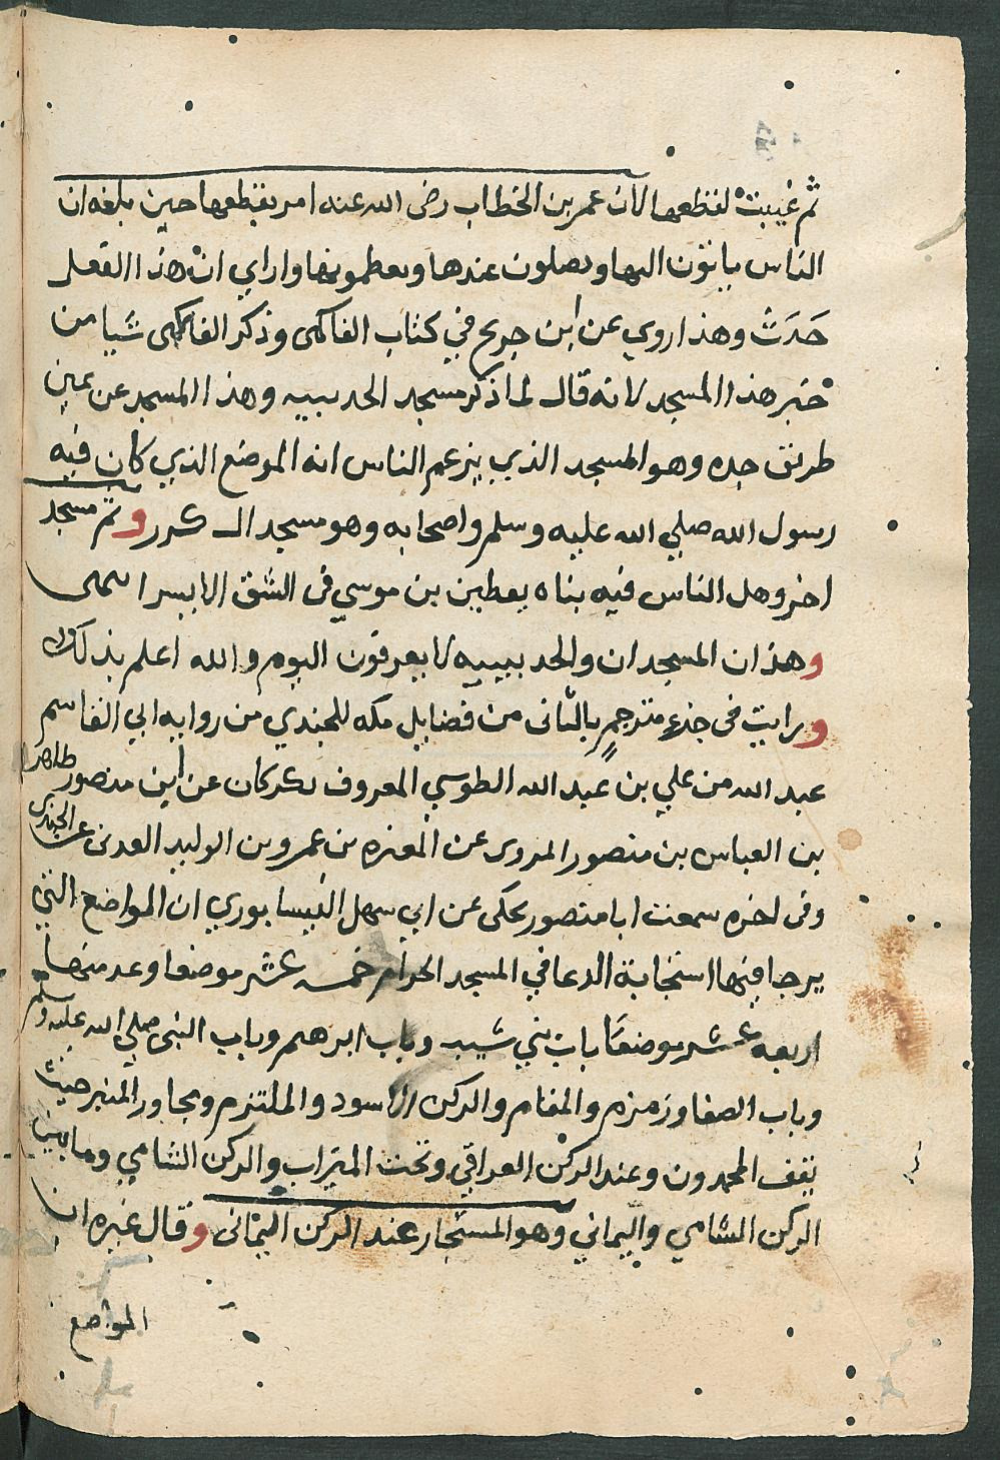 ثم غيبت لقظعها لان عمر بن الخطاب رضى الله عنه امر بقطعها حين بلغه ان
الناس ياتون اليها ويصلون عندها ويعظمونها وا راي ان هذا الفعل
حدث وهذا روي عن ابن جريج في كتاب الفاكهى وذكر الفاكهى شيا من
خبر هذا المسجد لانه قال لما ذكر مسجد الحديبيه وهذا المسجد عن يمين
طريق جده وهو المسجد الذي يزعم الناس انه الموضع الذي كان فيه
رسول الله صلي الله عليه وسلم واصحابه وهو مسجد الـ كرر وثم مسجد
اخر وهل الناس فيه بناه يعطين بن موسي فى الشق الايسر اسمى
وهذان المسجدان والحديبيه لا يعرفون اليوم والله اعلم بذلك
ورايت فى جذء مترجم بالثانى من فضايل مكه للجندي من روايه ابي القاسم
عبد الله من علي بن عبد الله الطوسي المعروف بكركان عن ابن منصور طاهر
بن العباس بن منصور المروى عن المعزه بن عمرو بن الوليد العدنى عن الجندى
وفى اخره سمعت ابا منصور يحكى عن ابي سهل النيسابوري ان المواضع التي
يرجا فيها استجابة الدعا في المسجد الحرام خمسه عشر موضعا وعد منها
اربعه عشر موضعا باب بني شيبه وباب ابرهيم وباب النبى صلي الله عليه وسلم
وباب الصفا وزمزم والمقام والركن الاسود والملتزم ومجاور المنبر حيث
يقف المحمدون وعند الركن العراقي وتحت الميزاب والركن الشامي وما بين
الركن الشامي واليماني وهو المستجار عند الركن اليمانى وقال غيره ان
المواضع